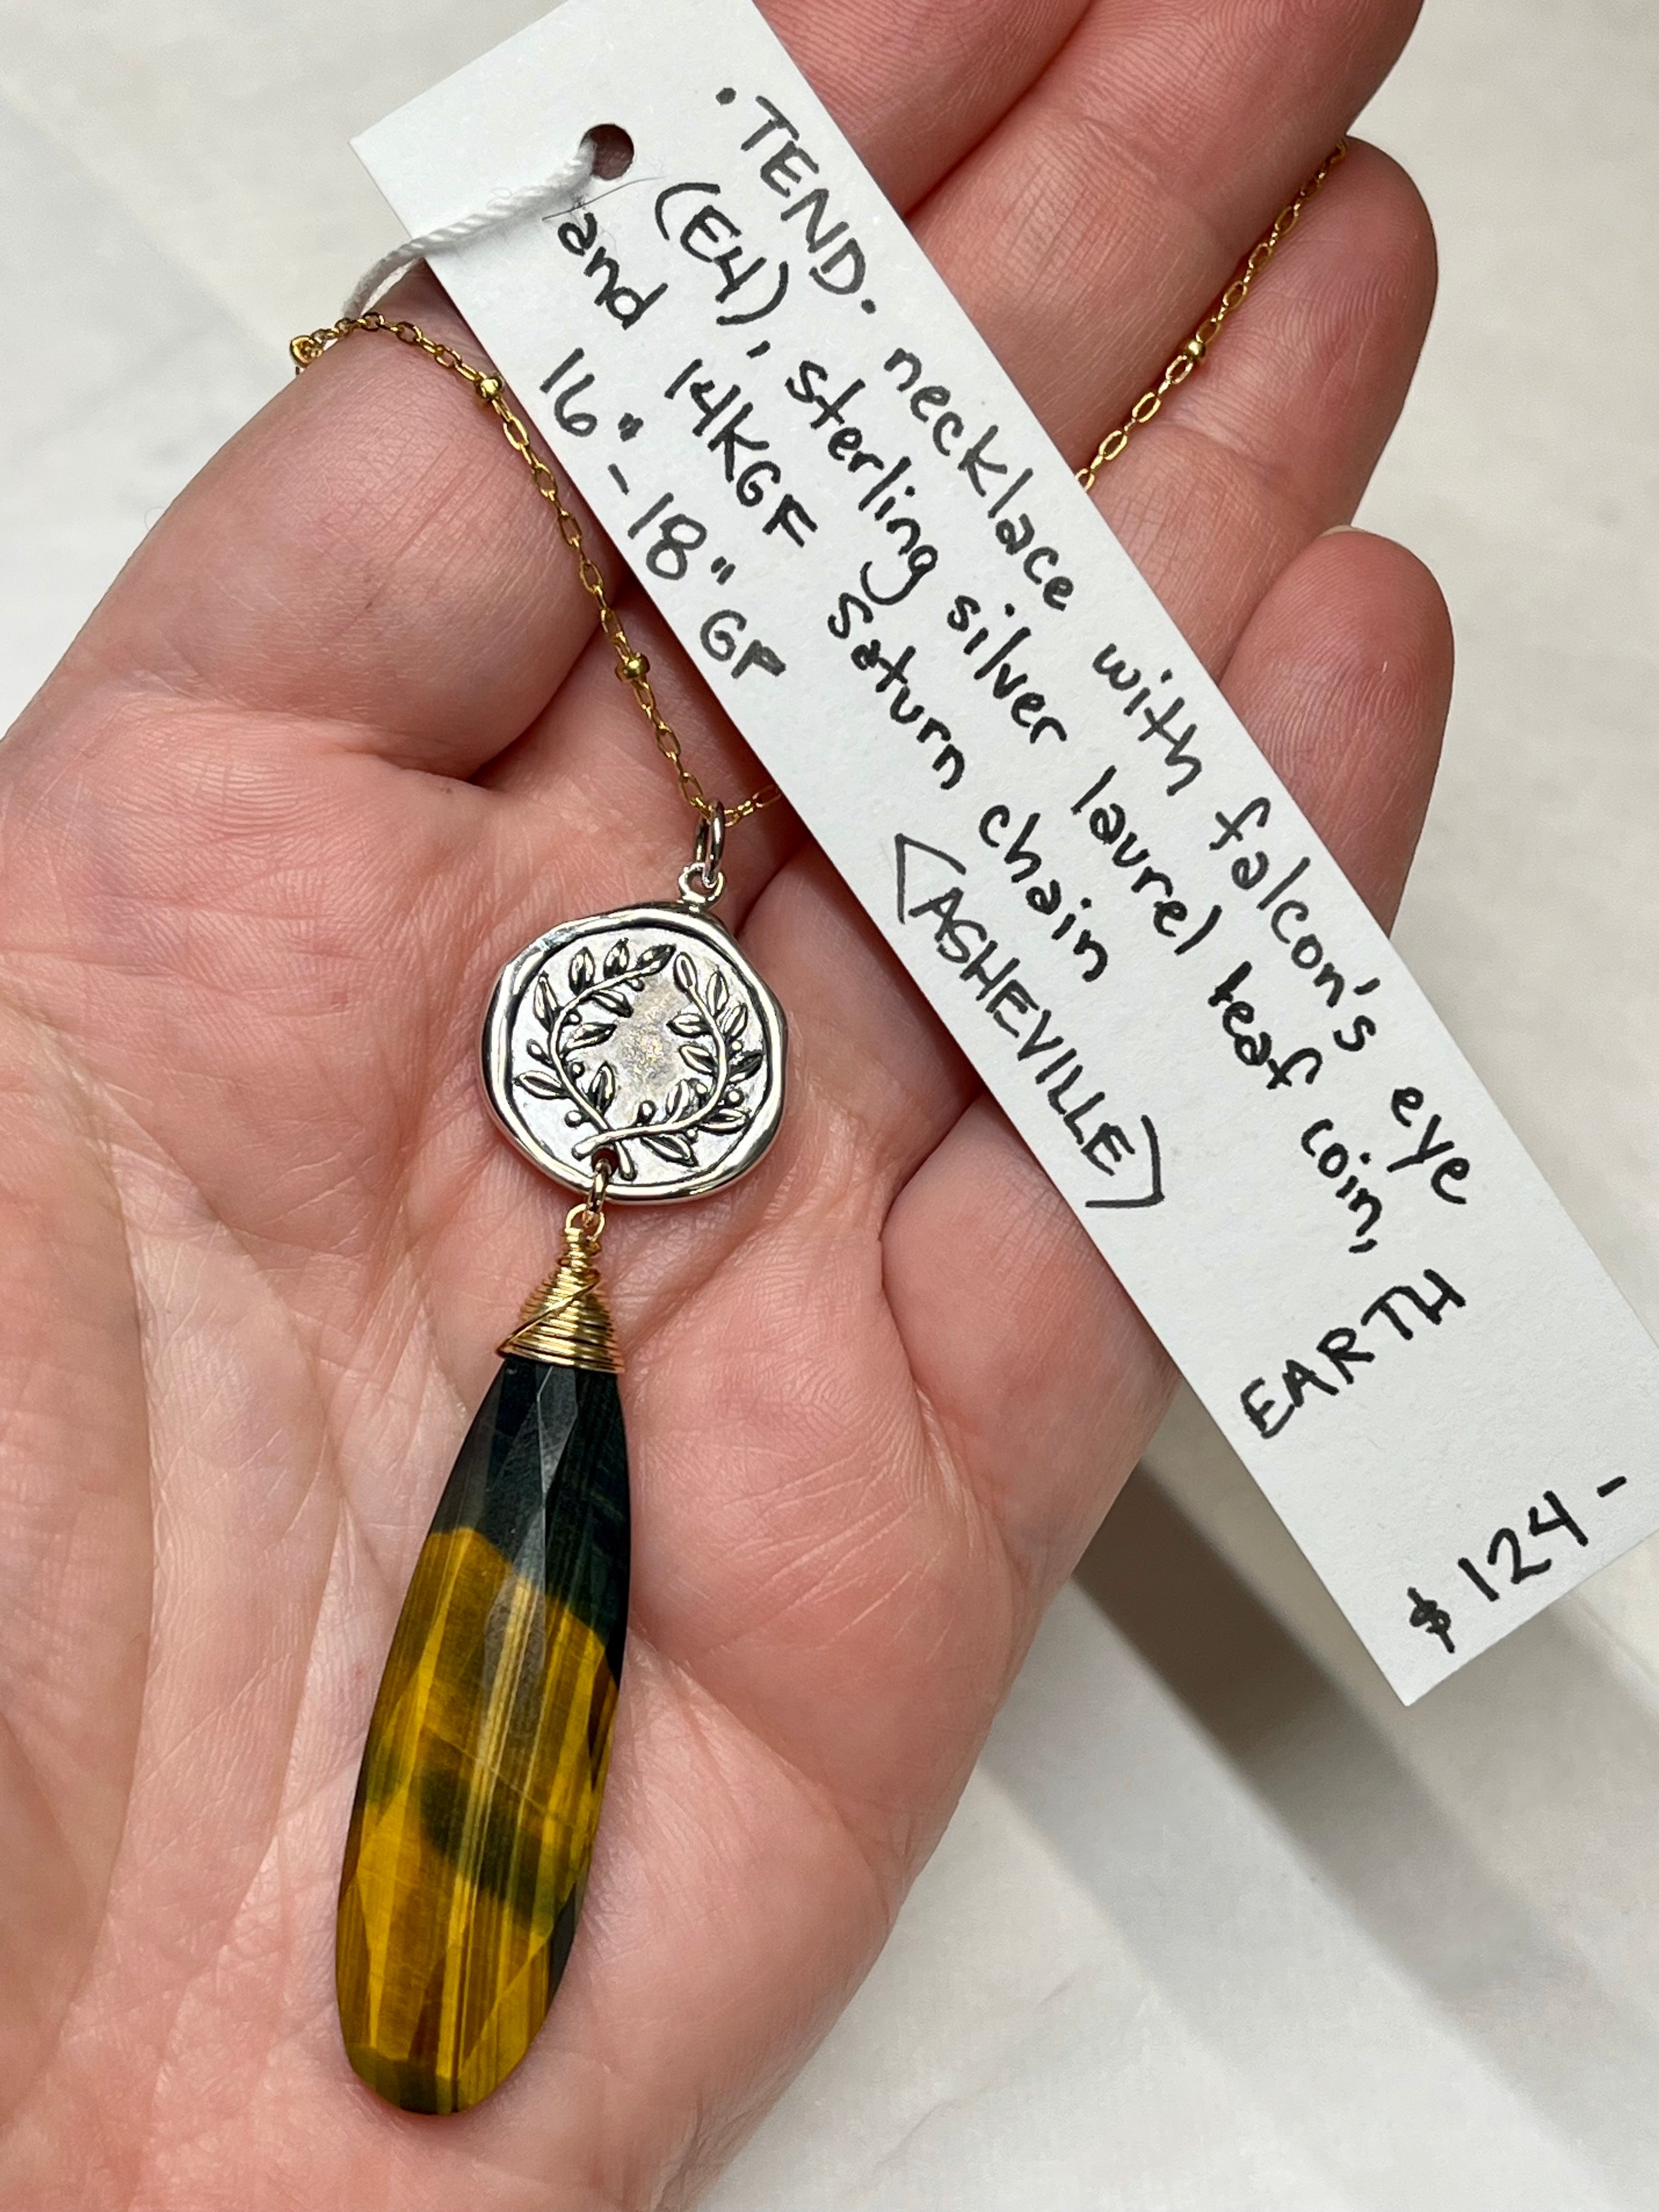 •TEND. necklace with falcon's eye
(E4), sterling silver laurel leaf coin,
and 14KGF saturn chain
16"-18" GF
<ASHEVILLE>
EARTH
$124-